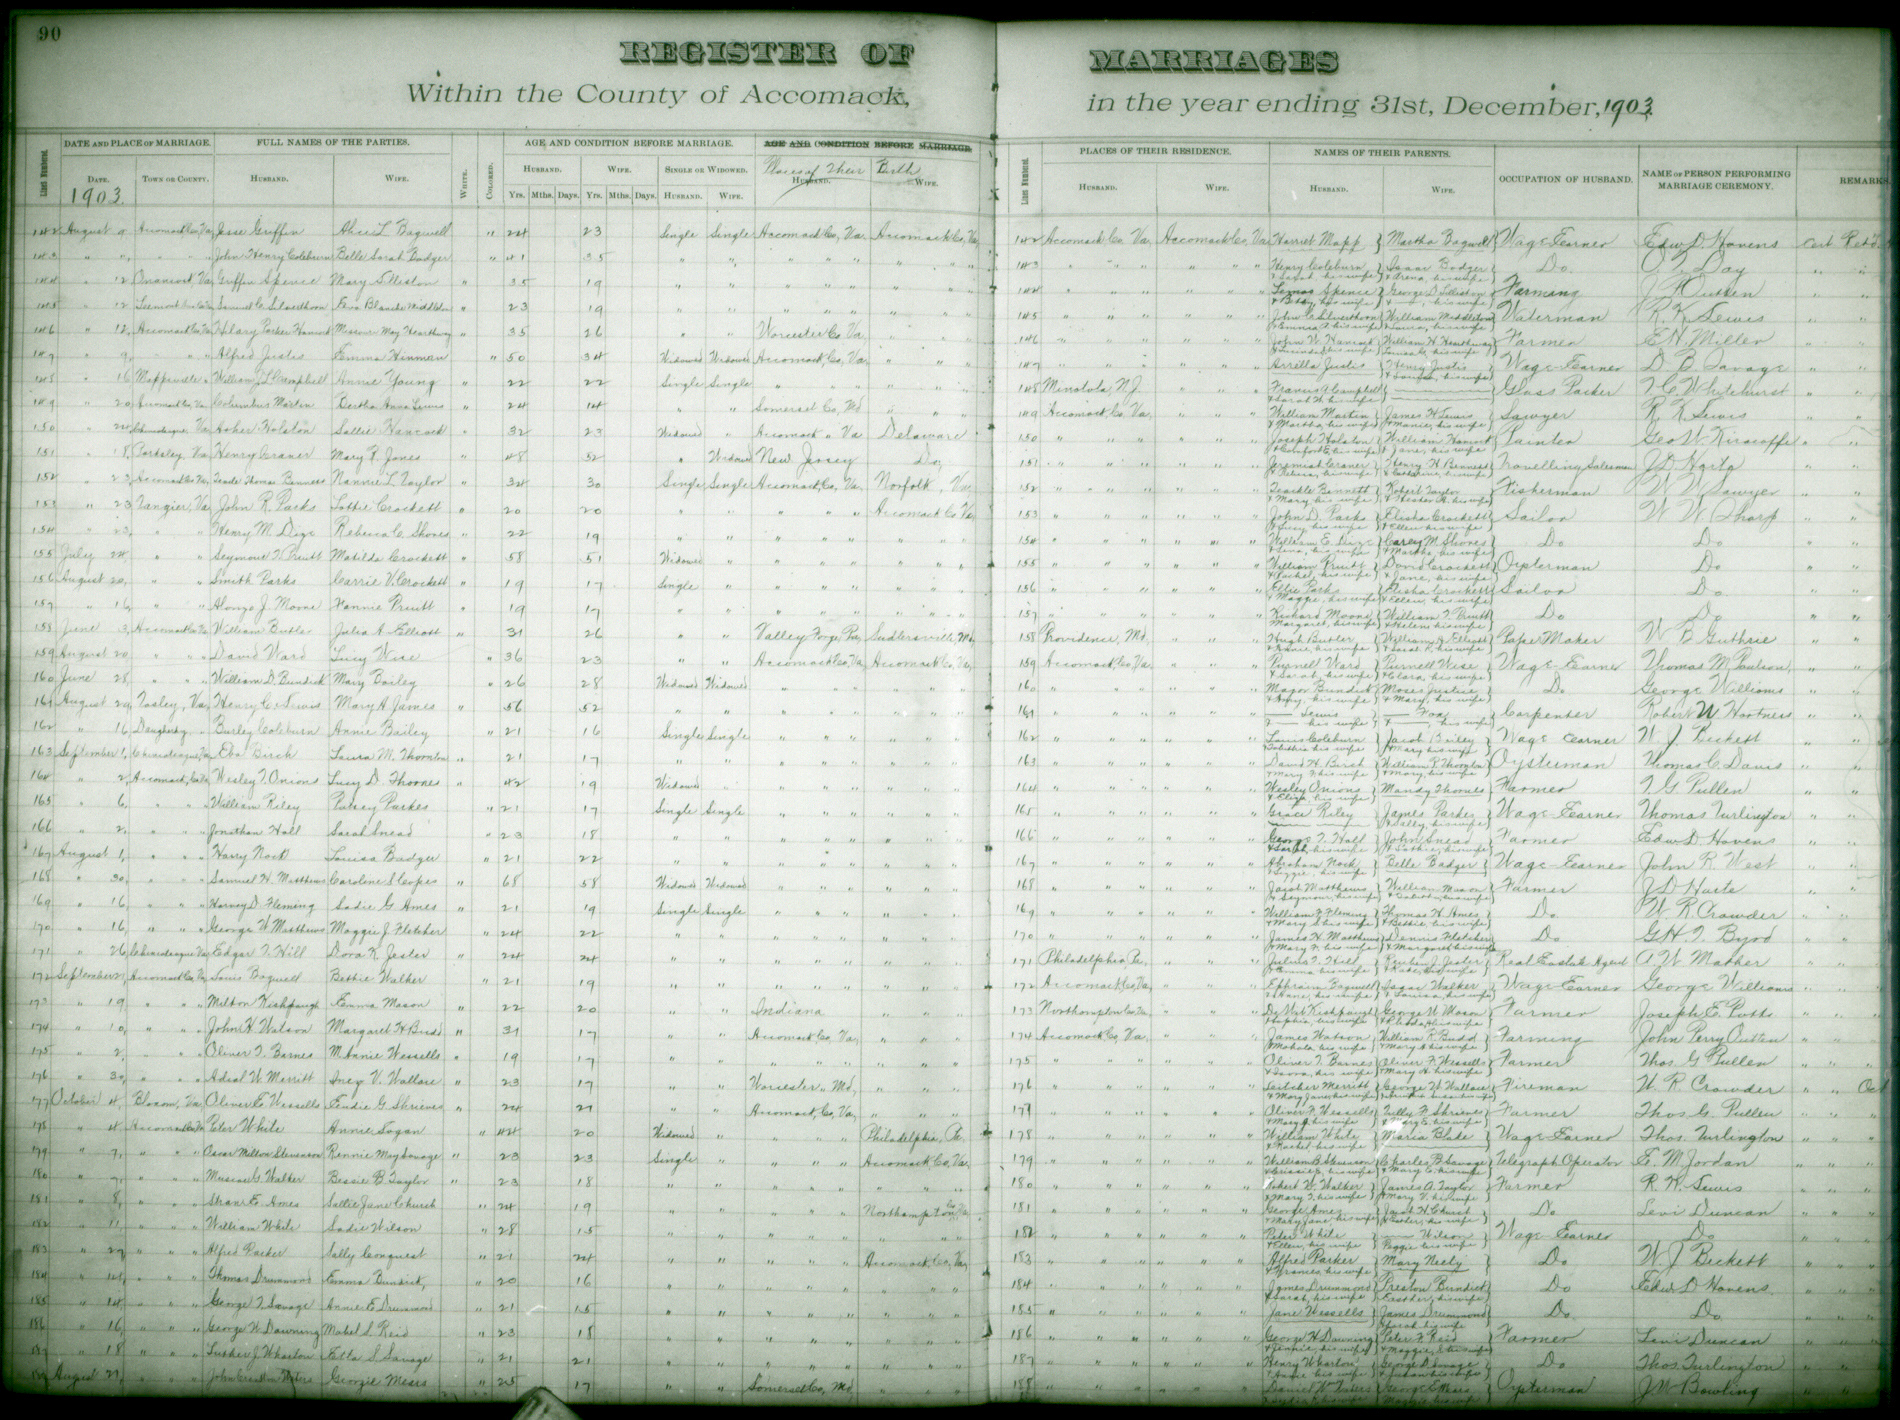 90
REGISTER OF MARRIAGES
Within the County of Accomack, in the year ending 31st, December, 1903.
Line Numbered.
DATE AND PLACE OF MARRIAGE. FULL NAMES OF THE PARTIES. WHITE. COLORED. AGE AND CONDITION BEFORE MARRIAGE. AGE AND CONDITION BEFORE MARRIAGE.
Places of Their Birth
DATE. TOWN OR COUNTY. HUSBAND. WIFE. HUSBAND. WIFE. SINGLE OR WIDOWED. HUSBAND. WIFE.
1903. Yrs. Mths. Days. Yrs. Mths. Days. HUSBAND. WIFE.
Line Numbered. PLACES OF THEIR RESIDENCE. NAMES OF THEIR PARENTS. OCCUPATION OF HUSBAND. NAME OF PERSON PERFORMING MARRIAGE CEREMONY. REMARKS
HUSBAND. WIFE. HUSBAND. WIFE.
142 August 9 Accomack Co, Va, Jesse Griffin Alice L Bagwell " 24 23 Single Single Accomack Co, Va, Accomack Co, Va,
143 " " " " " John Henry Coleburn Belle Sarah Badger " 41 35 " " " " " " " "
144 " 12 Onancock Va, Griffin Spence Mary S Elliston " 35 19 " " " " " " " "
145 " 12 Samuel C. Silverthorn Eva Blanche Middleton " 23 19 " " " " " " " "
146 " 12, Accomack Co, Va, Hilary Parker Hancock May " 35 26 " " Worcester Co, Va, " " "
147 " 9, " " " Alfred Justis Emma Hinman " 50 34 Widowed Widowed Accomack Co, Va, " " "
148 " 16 Mappsville " William J L Campbell Annie Young " 22 22 Single Single " " " " " "
149 " 20, Accomack Co, Va, Columbus Martin Bertha Anna Lewis " 24 14 " " Somerset Co, Md " " "
150 " 24, Chincoteague, Va, Holston Sallie Hancock " 32 23 Widowed " Accomack " Va Delaware
151 " 8, Parksley, Va, Henry Craner Mary P. Jones " 48 52 " Widowed New Jersey Do,
152 " 23, Accomack Co, Va, Thomas Bonness Nannie L Taylor " 34 30 Single, Single, Accomack, Co, Va, Norfolk, Va,
153 " 23 Tangier, Va, John R. Parks Lottie Crockett " 20 20 " " " " " Accomack Co, Va,
154 " 23, " " Henry M. Dize Rebecca C. Shores " 22 19 " " " " " " " "
155 July 24, " " Seymour T. Pruitt Matilda Crockett " 58 51 Widowed " " " " " " "
156 August 20, " " Smith Parks Carrie V. Crockett " 19 17 Single " " " " " " "
157 " 16, " " Alonzo J. Moore Fannie Pruitt " 19 17 " " " " " " " "
158 June 3, Accomack Co, Va, William Butler Julia A Elliott " 31 26 " " Valley Forge, Pa, Sudlersville, Md,
159 August 20, " " " David Ward Lucy Wise " 36 23 " " Accomack Co, Va, Accomack Co, Va,
160 June 28, " " " William D. Bundick Mary Bailey " 26 28 Widowed Widowed " " " " " "
161 August 29, Tasley, Va, Henry C. Lewis Mary A. James " 56 52 " " " " " " " "
162 " 16, Daugherty " Burley Coleburn Annie Bailey " 21 16 Single Single " " " " " "
163 September 1, Chincoteague, Va, Eba Birch Laura M. Thornton " 21 17 " " " " " " " "
164 " 2, Accomack, Co, Va, Wesley T. Onions Lucy D. Thornes " 42 19 Widowed " " " " " " "
165 " 6, " " " William Riley Patsey Parkes " 21 17 Single Single " " " " " "
166 " 2, " " " Jonathan Hall Sarah Snead " 23 18 " " " " " " " "
167 August 1, " " " Harry Nock Louisa Badger " 21 22 " " " " " " " "
168 " 30, " " " Samuel H. Matthews Caroline S Copes " 68 58 Widowed Widowed " " " " " "
169 " 16, " " " Harvey D. Fleming Sadie G. Ames " 21 19 Single Single " " " " " "
170 " 16, " " " George W. Matthews Maggie J. Fletcher " 24 22 " " " " " " " "
171 " 26, Chincoteague, Va, Edgar T. Hill Dora K. Jester " 24 24 " " " " " " " "
172 September 2, Accomack Co, Va, Louis Bagwell Bettie Walker " 21 19 " " " " " " " "
173 " 19 " " " Milton Kishpaugh Emma Mason " 22 20 " " Indiana " " "
174 " 10, " " " John H. Watson Margaret H Budd " 31 17 " " Accomack Co, Va, " " "
175 " 2, " " " Oliver T. Barnes M. Annie Wessells " 19 17 " " " " " " " "
176 " 30, " " " W. Merritt Inez V. Wallace " 23 17 " " Worcester " Md, " " "
177 October 4, Bloxom, Va, Oliver E. Wessells Fendie G. Shrieves " 24 21 " " Accomack, Co, Va, " " "
178 " 4, Accomack Co, Va, Peter White Annie Logan " 44 20 Widowed " " " " Philadelphia, Pa,
179 " 7, " " " Oscar Milton Stevenson Rennie May Savage " 23 23 Single " " " " Accomack Co, Va,
180 " 7, " " " G. Walker Bessie B Taylor " 23 18 " " " " " " " "
181 " 8, " " " E. Ames Sallie Jane Church " 24 19 " " " " " Northampton Co, Va,
182 " 11, " " " William White Sadie Wilson " 28 15 " " " " " " " "
183 " 27, " " " Alfred Parker Sally Conquest " 21 24 " " " " " Accomack, Co, Va,
184 " " " " Thomas Drummond Emma Bundick, " 20 16 " " " " " " " "
185 " 14, " " " George T. Savage Annie E. Drummond " 21 15 " " " " " " " "
186 " 16, " " " George W. Downing Mabel S. Reid " 23 18 " " " " " " " "
187 " 18 " " " Luther J. Wharton Etta S. Savage " 21 21 " " " " " " " "
188 August 27, " " " John Georgie Mears " 25 17 " " Somerset Co, Md, " " "
142 Accomack Co, Va, Accomack Co, Va, Harriet Mapp } Martha Bagwell Wage-Earner Edw. D. Havens Cert. Ret'd
143 " " " " " " Henry Coleburn & Sarah, his wife } Isaac Badger & Arena, his wife Do. Day " "
144 " " " " " " Spence & Betsy, his wife } George D. Elliston & , his wife Farming J. Outten " "
145 " " " " " " John C Silverthorn & Emma A. his wife } William Middleton & , his wife Waterman R. K. Lewis " "
146 " " " " " " John W Hancock & , his wife } William H. & , his wife Farmer E. H. Miller " "
147 " " " " " " Arrella Justis } Henry Justis & Louisa, his wife Wage-Earner D. B. Savage " "
148 Minotola, N.J. " " " Francis Campbell & Sarah H. his wife } Glass Packer T. C. Whitehurst " "
149 Accomack Co, Va, " " " William Martin & Martha, his wife } James H Lewis & , his wife Sawyer R. K. Lewis " "
150 " " " " " " Joseph Holston & Comfort E, his wife } William Hancock & Jane, his wife Painter Geo W. " "
151 " " " " " " Jeremiah Craner & , his wife } Henry H. Bennett & Catherine, his wife Travelling Salesman J. D. " "
152 " " " " " " Bennett & Mary, his wife } Robert Taylor & Hester A. his wife Fisherman W. W. Sawyer " "
153 " " " " " " John D. Parks & Lucy, his wife } Elisha Crockett & Ellen his wife Sailor W. W. Sharp " "
154 " " " " " " William E. Dize & , his wife } Carey M. Shores & Martha, his wife Do Do " "
155 " " " " " " William Pruitt & Rachel, his wife } David Crockett & Jane, his wife Oysterman Do " "
156 " " " " " " Parks & Maggie, his wife } Elisha Crockett & Ellen, his wife Sailor Do " "
157 " " " " " " Richard Moore & Margaret, his wife } William T. Pruitt & Helen, his wife Do Do " "
158 Providence, Md, " " " Hugh Butler & Annie, his wife } William J. Elliott & Sarah P. his wife Paper Maker W. B. Guthrie " "
159 Accomack, Co, Va, " " " Purnell Ward & Sarah, his wife } Purnell Wise & Clara, his wife Wage-Earner Thomas M. Poulson, " "
160 " " " " " " Major Bundick & , his wife } Moses Justice & Mary, his wife Do George Williams " "
161 " " " " " " — Lewis & — his wife } — Fox & — his wife Carpenter Robert W Hortness " "
162 " " " " " " Louis Coleburn & Tabitha his wife } Jacob Bailey & Mary his wife Wage Earner W. J. Beckett " "
163 " " " " " " David H. Birch & Mary F. his wife } William R. Thornton & Mary, his wife Oysterman Thomas C. Davis " "
164 " " " " " " Wesley Onions & Eliza, his wife } Mandy Thornes Farmer T. G. Pullen " "
165 " " " " " " Grace Riley } James Parkes & Sally, his wife Wage-Earner Thomas Turlington " "
166 " " " " " " George T. Hall & Sarah, his wife } John Snead & Sabra, his wife Farmer Edw. D. Havens " "
167 " " " " " " Abraham Nock & Lizzie, his wife } Belle Badger Wage-Earner John R. West " "
168 " " " " " " Jacob Matthews & , his wife } William Mason & , his wife Farmer J. D. " "
169 " " " " " " William F. Fleming & Mary S. his wife } Thomas H. Ames & Bettie, his wife Do W. R. Crowder " "
170 " " " " " " James H. Matthews & Mary F. his wife } Dennis Fletcher & Margaret his wife Do G. H. T. Byrd " "
171 Philadelphia, Pa, " " " Julius T. Hill & Emma his wife } Reuben J. Jester & Kate, his wife Real Estate Agent A. W. Mather " "
172 Accomack, Co, Va, " " " Ephraim Bagwell & Jane, his wife } Walker & Louisa, his wife Wage-Earner George Williams " "
173 Northampton Co, Va, " " " DeWit Kishpaugh & Sophia, his wife } George W. Mason & , his wife Farmer Joseph E. Potts " "
174 Accomack, Co, Va, " " " James Watson & Mahala his wife } William R. Budd & Mary A. his wife Farming John Perry Outten " "
175 " " " " " " Oliver T. Barnes & , his wife } Oliver F. Wessells & Mary H. his wife Farmer Thos. G. Pullen " "
176 " " " " " " Merritt & Mary Jane, his wife } George W. Wallace & his wife Fireman W. R. Crowder " "
177 " " " " " " Oliver F. Wessells & Mary J. his wife } F. Shrieves & Mary E. his wife Farmer Thos. G. Pullen " "
178 " " " " " " William White & Rachel his wife } Maria Blake Wage-Earner Thos. Turlington " "
179 " " " " " " William B. Stevenson & , his wife } Charles B. Savage & Mary E. his wife Telegraph Operator E. M. Jordan " "
180 " " " " " " Robert W. Walker & Mary T. his wife } James A. Taylor & Mary V. his wife Farmer R. K. Lewis " "
181 " " " " " " George Ames & Mary Jane, his wife } Jacob H. Church & Esther, his wife Do Levi Duncan " "
182 " " " " " " Peter White & Ellen, his wife } — Wilson & Peggie his wife Wage-Earner Do " "
183 " " " " " " Alfred Parker & Frances, his wife } Mary Neely Do W. J. Beckett " "
184 " " " " " " James Drummond & Sarah, his wife } Preston Bundick & Esther, his wife Do Edw. D. Havens " "
185 " " " " " " Jane Wessells } James Drummond & Sarah his wife Do. Do " "
186 " " " " " " George H. Downing & Jennie, his wife } Peter F. Reid & Maggie, his wife Farmer Levi Duncan " "
187 " " " " " " Henry Wharton & Annie his wife } George D. Savage & Susan his wife Do Thos. Turlington " "
188 " " " " " " Daniel W. & , his wife } George E. Mears & Maggie, his wife Oysterman J. W. Bowling " "